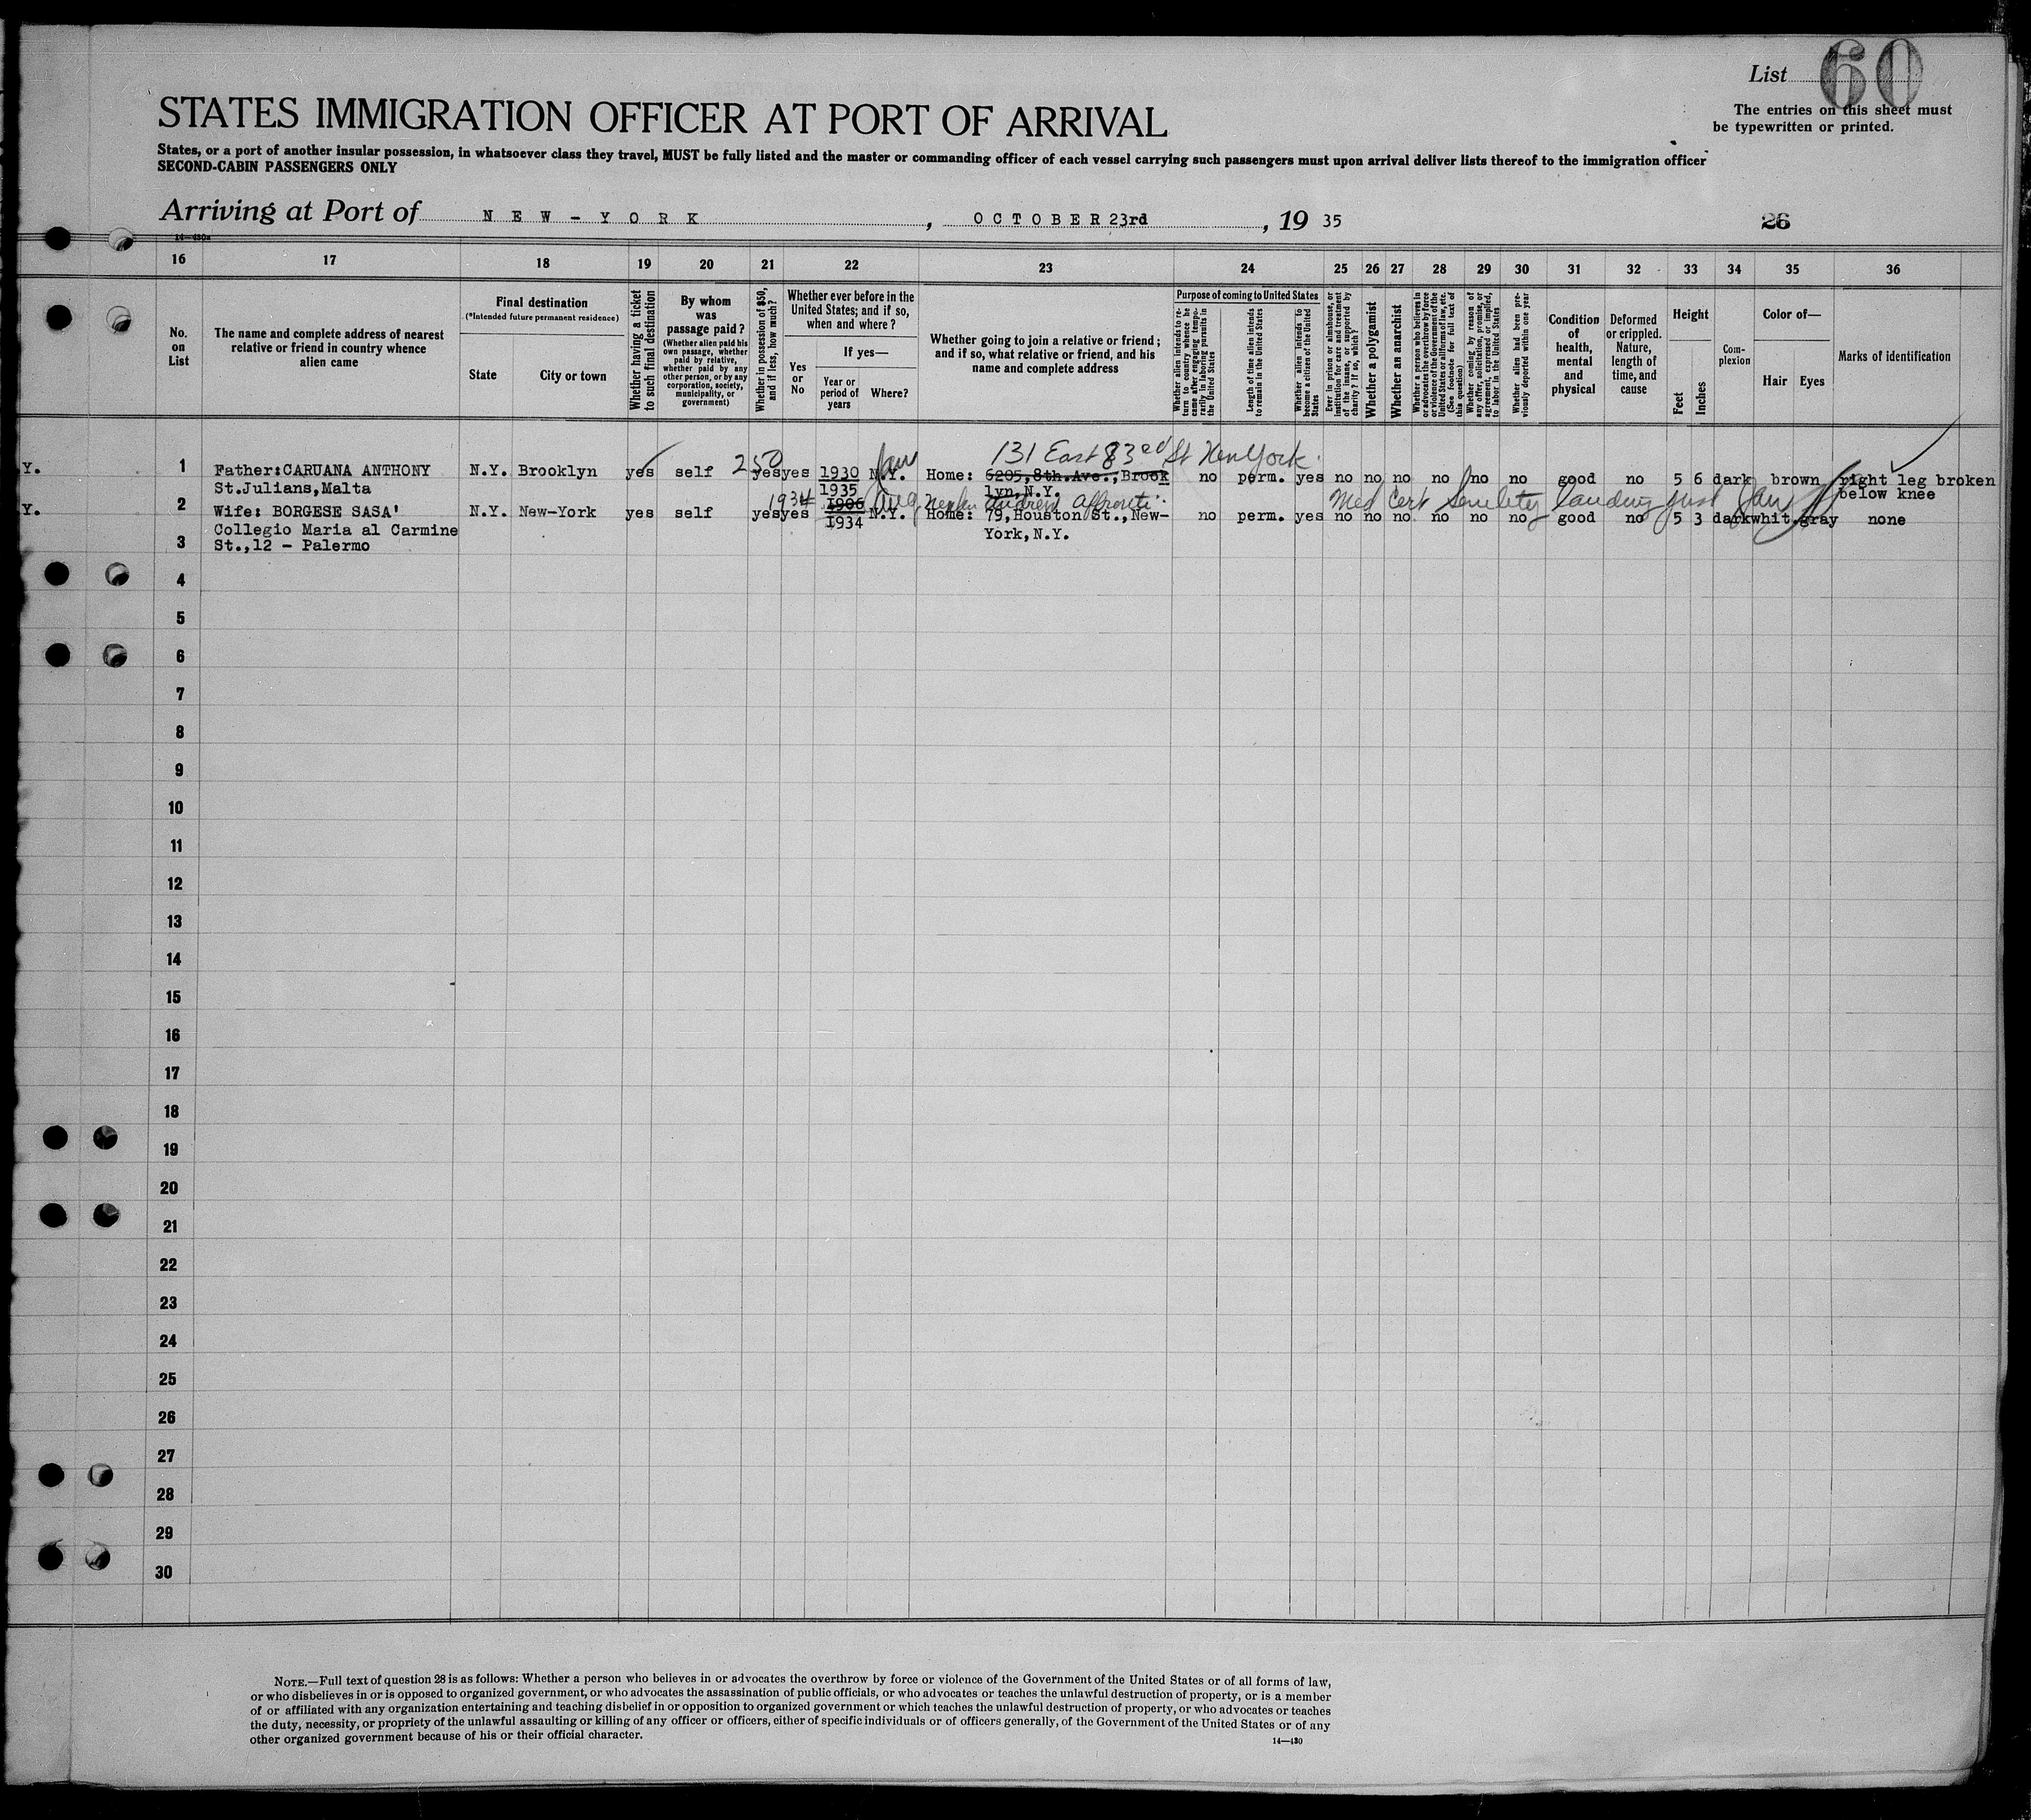 List 60
The entries on this sheet must
be typewritten or printed.
STATES IMMIGRATION OFFICER AT PORT OF ARRIVAL
States, or a port of another insular possession, in whatsoever class they travel, MUST be fully listed and the master or commanding officer of each vessel carrying such passengers must upon arrival deliver lists thereof to the immigration officer
SECOND-CABIN PASSENGERS ONLY
Arriving at Port of NEW-YORK, OCTOBER 23rd, 19 35
26
14—430a
16 17 18 19 20 21 22 23 24 25 26 27 28 29 30 31 32 33 34 35 36
No. on List
The name and complete address of nearest relative or friend in country whence alien came
Final destination
(*Intended future permanent residence)
State
City or town
Whether having a ticket to such final destination
By whom was passage paid?
(Whether alien paid his own passage, whether paid by relative, whether paid by any other person, or by any corporation, society, municipality, or government)
Whether in possession of $50, and if less, how much?
Whether ever before in the United States; and if so, when and where?
Yes or No
If yes—
Year or period of years
Where?
Whether going to join a relative or friend; and if so, what relative or friend, and his name and complete address
Purpose of coming to United States
Whether alien intends to return to country whence he came after engaging temporarily in laboring pursuits in the United States
Length of time alien intends to remain in the United States
Whether alien intends to become a citizen of the United States
Ever in prison or almshouse, or institution for care and treatment of the insane, or supported by charity? If so, which?
Whether a polygamist
Whether an anarchist
Whether a person who believes in or advocates the overthrow by force or violence of the Government of the United States or all forms of law, etc. (See footnote for full text of this question)
Whether coming by reason of any offer, solicitation, promise, or agreement, expressed or implied, to labor in the United States
Whether alien had been previously deported within one year
Condition of health, mental and physical
Deformed or crippled. Nature, length of time, and cause
Height
Feet
Inches
Complexion
Color of—
Hair
Eyes
Marks of identification
131 East 83rd St New York.
250
Y. 1 Father:CARUANA ANTHONY N.Y. Brooklyn yes self yes yes 1930 N.Y. Home: 6205,8th.Ave.,Brook no perm. yes no no no no no no good no 5 6 dark brown right leg broken
St.Julians,Malta 1935 lyn,N.Y. below knee
1934 Med Cert Senility landing just
Y. 2 Wife: BORGESE SASA' N.Y. New-York yes self yes yes 1906 N.Y. Home: 79,Houston St.,New- no perm. yes no no no no no no good no 5 3 dark whit.gray none
Collegio Maria al Carmine 1934 York,N.Y.
3 St.,12 - Palermo
4
5
6
7
8
9
10
11
12
13
14
15
16
17
18
19
20
21
22
23
24
25
26
27
28
29
30
NOTE.—Full text of question 28 is as follows: Whether a person who believes in or advocates the overthrow by force or violence of the Government of the United States or of all forms of law,
or who disbelieves in or is opposed to organized government, or who advocates the assassination of public officials, or who advocates or teaches the unlawful destruction of property, or is a member
of or affiliated with any organization entertaining and teaching disbelief in or opposition to organized government or which teaches the unlawful destruction of property, or who advocates or teaches
the duty, necessity, or propriety of the unlawful assaulting or killing of any officer or officers, either of specific individuals or of officers generally, of the Government of the United States or of any
other organized government because of his or their official character.
14—430